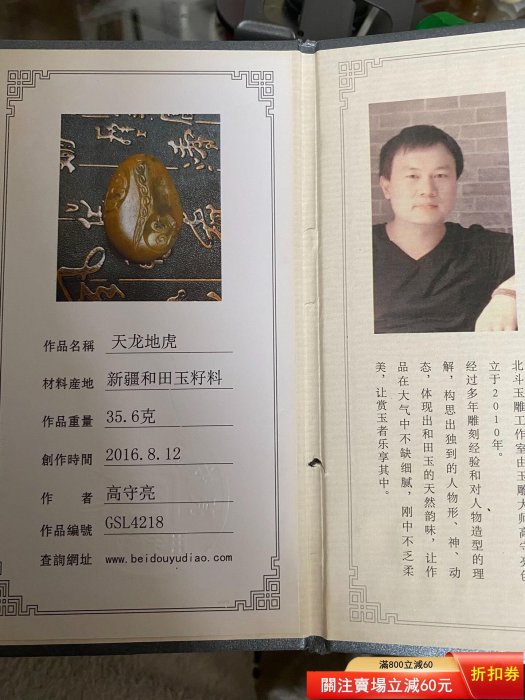 作品名稱 天龙地虎
材料産地 新疆和田玉籽料
作品重量 35.6克
創作時間 2016.8.12
作者 高守亮
作品編號 GSL4218
查詢網址 www.beidouyudiao.com
北斗玉雕工作室由玉雕大师高守亮创
立于2010年。
经过多年雕刻经验和对人物造型的理
解，构思出独到的人物形、神、动
态，体现出和田玉的天然韵味，让作
品在大气中不缺细腻，刚中不乏柔
美，让赏玉者乐享其中。
滿800立減60
關注賣場立減60元
折扣券